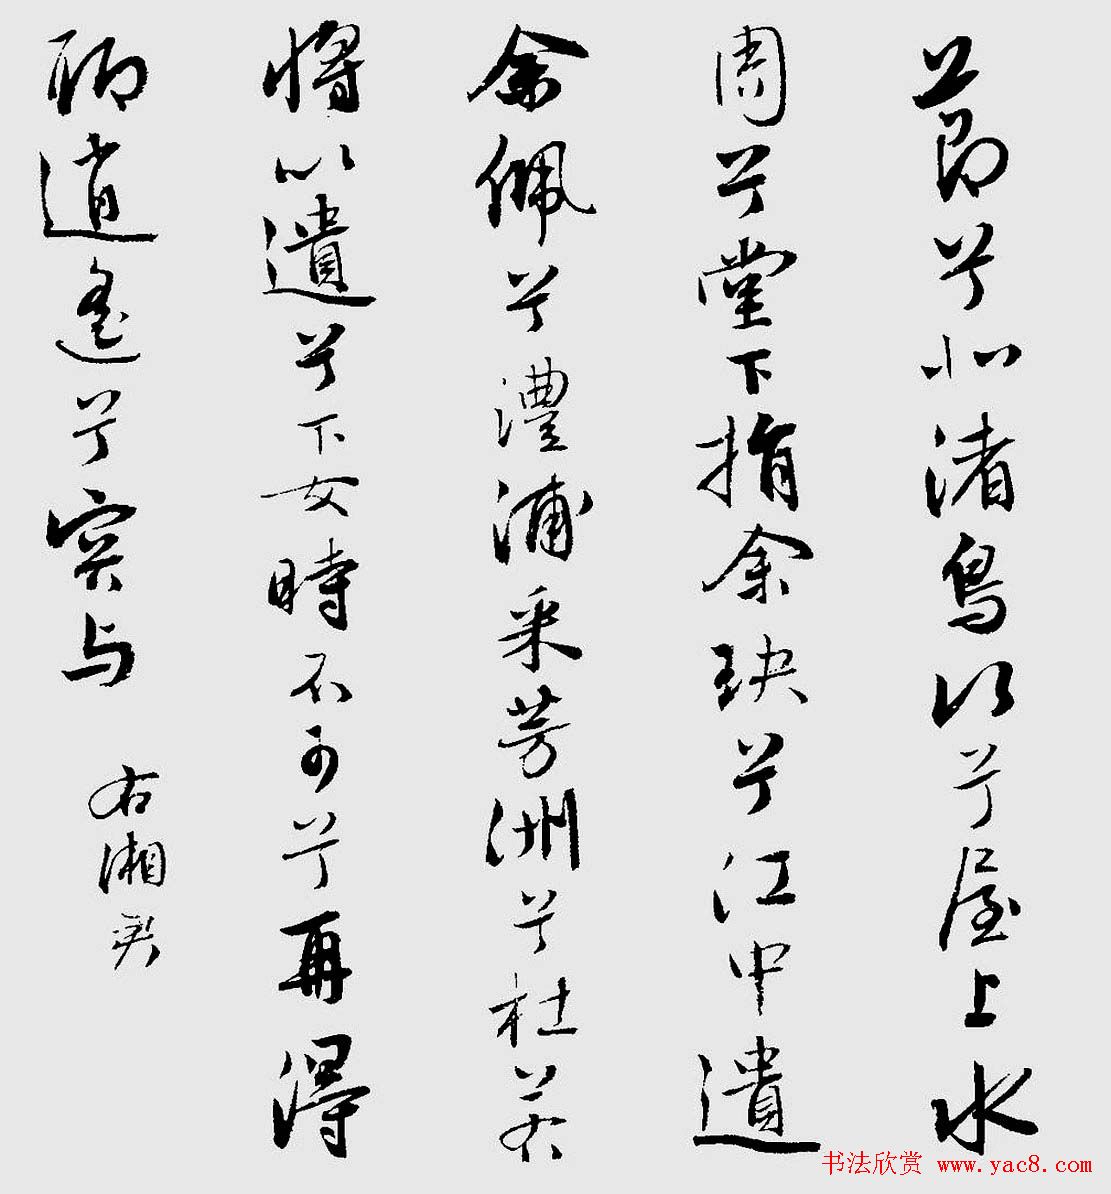 節兮北渚鳥次兮屋上水
周兮堂下捐余玦兮江中遺
余佩兮澧浦采芳洲兮杜若
将以遺兮下女時不可兮再得
聊逍遥兮容与
右湘君
书法欣赏 www.yac8.com